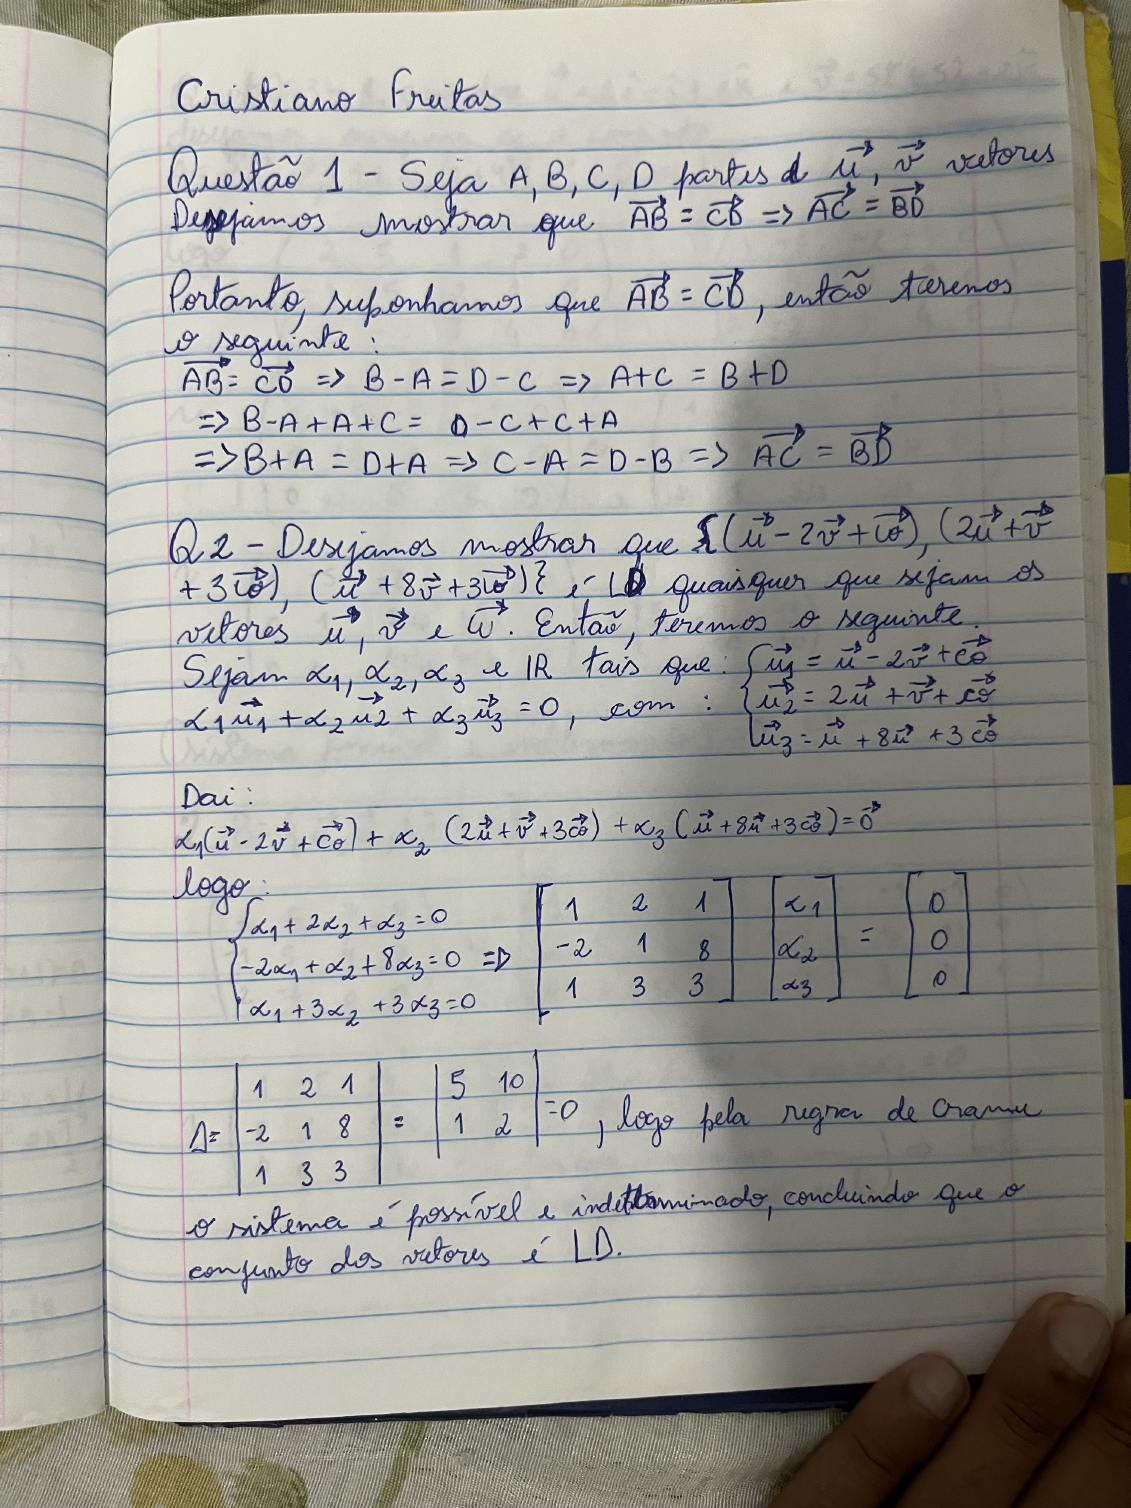 Cristiano Freitas
Questão 1 - Seja A, B, C, D partes d u⃗, v⃗ vetores
Desejamos mostrar que AB⃗ = CD⃗ => AC⃗ = BD⃗
Portanto, suponhamos que AB⃗ = CD⃗, então teremos
o seguinte:
AB⃗ = CD⃗ => B-A = D-C => A+C = B+D
=> B-A+A+C = D-C+C+A
=> B+A = D+A => C-A = D-B => AC⃗ = BD⃗
Q2 - Desejamos mostrar que {(u⃗-2v⃗+ω⃗), (2u⃗+v⃗
+3ω⃗), (u⃗+8v⃗+3ω⃗)} é LD quaisquer que sejam os
vetores u⃗, v⃗ e ω⃗. Então, teremos o seguinte.
Sejam α1, α2, α3 e IR tais que: { u⃗1 = u⃗-2v⃗+ω⃗
α1u⃗1+α2u⃗2+α3u⃗3=0, com: u⃗2 = 2u⃗+v⃗+ω⃗
u⃗3 = u⃗+8u⃗+3ω⃗
Dai:
α1(u⃗-2v⃗+ω⃗)+α2(2u⃗+v⃗+3ω⃗)+α3(u⃗+8u⃗+3ω⃗)=0⃗
logo:
{ α1+2α2+α3=0 [ 1 2 1 ] [ α1 ] [ 0 ]
-2α1+α2+8α3=0 => [ -2 1 8 ] [ α2 ] = [ 0 ]
α1+3α2+3α3=0 [ 1 3 3 ] [ α3 ] [ 0 ]
| 1 2 1 | | 5 10 |
Δ= | -2 1 8 | = | 1 2 | =0, logo pela regra de Cramer
| 1 3 3 |
o sistema é possível e indeterminado, concluindo que o
conjunto dos vetores é LD.